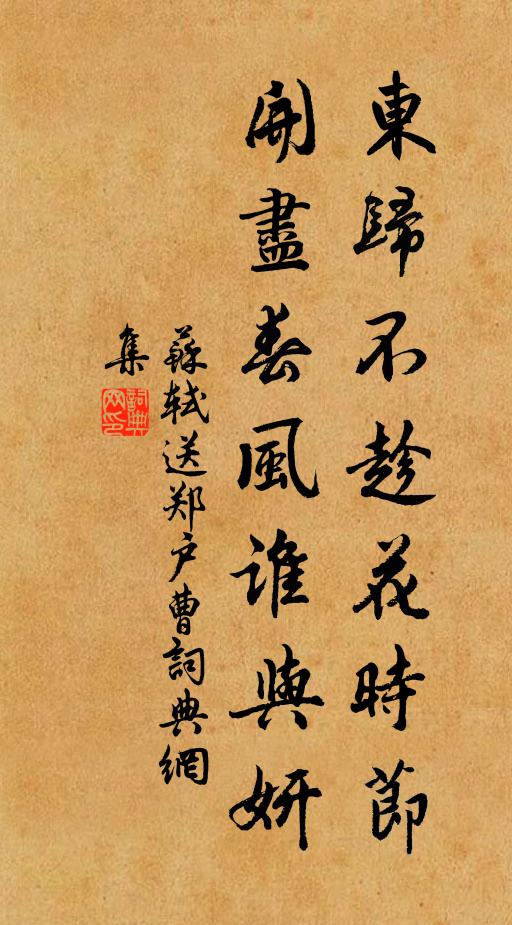 東歸不趁花時節
開盡春風誰與妍
蘇軾送郑户曹詞典網
集
詞典
网印